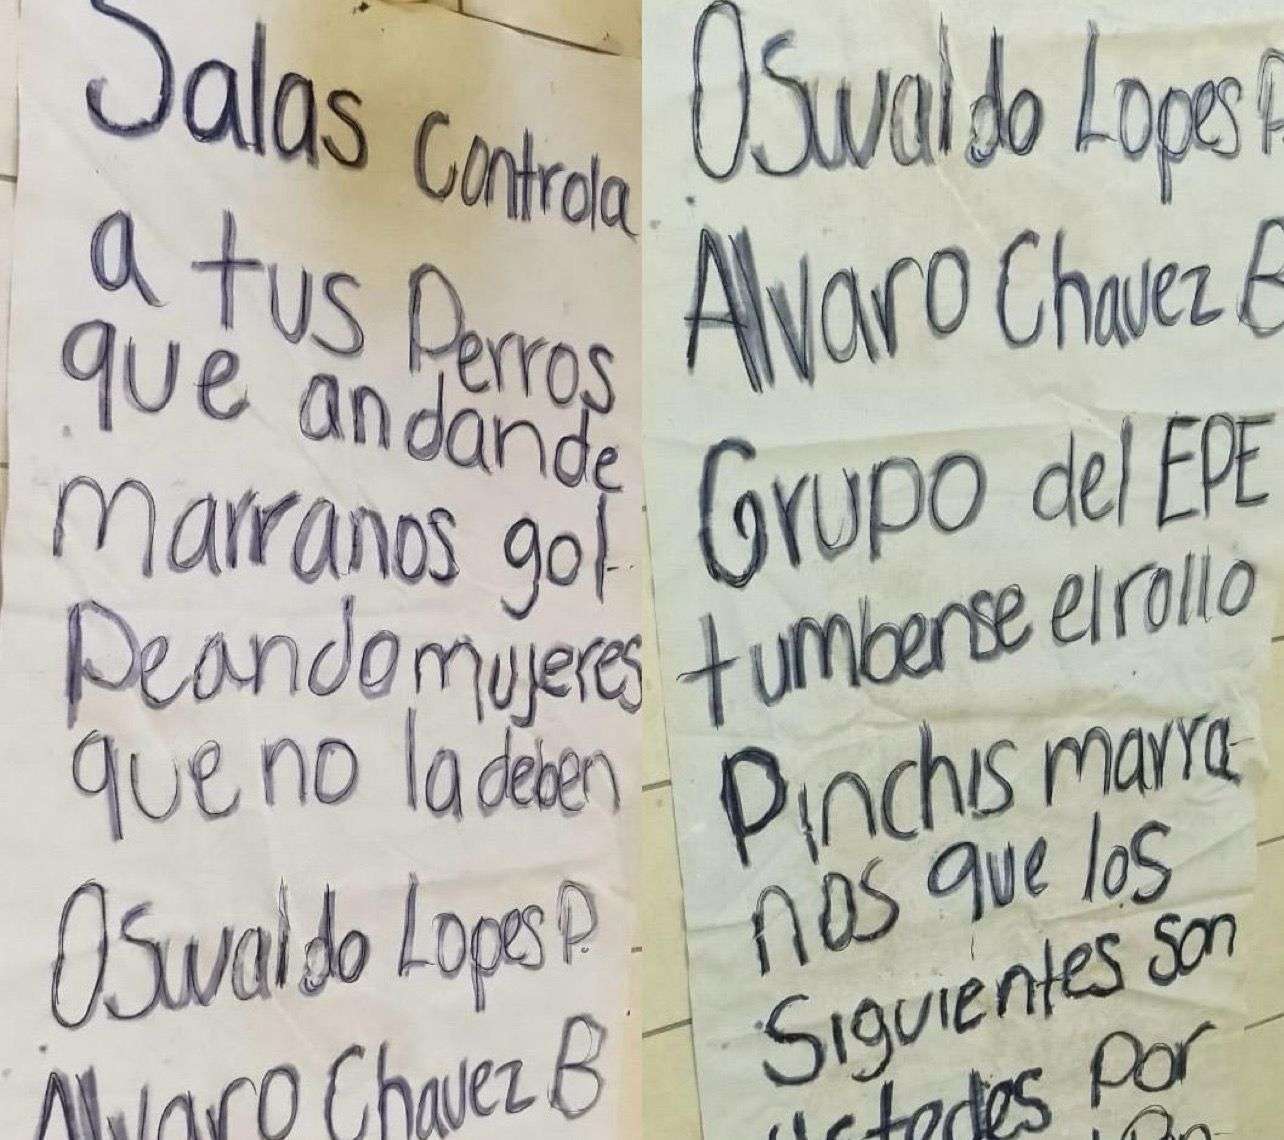 Salas controla
a tus Perros
que andande
marranos gol-
Peando mujeres
que no la deben
Oswaldo Lopes P.
Alvaro Chavez B
Oswaldo Lopes P.
Alvaro Chavez B
Grupo del EPE
tumbense el rollo
Pinchis marra-
nos que los
Siguientes son
ustedes por